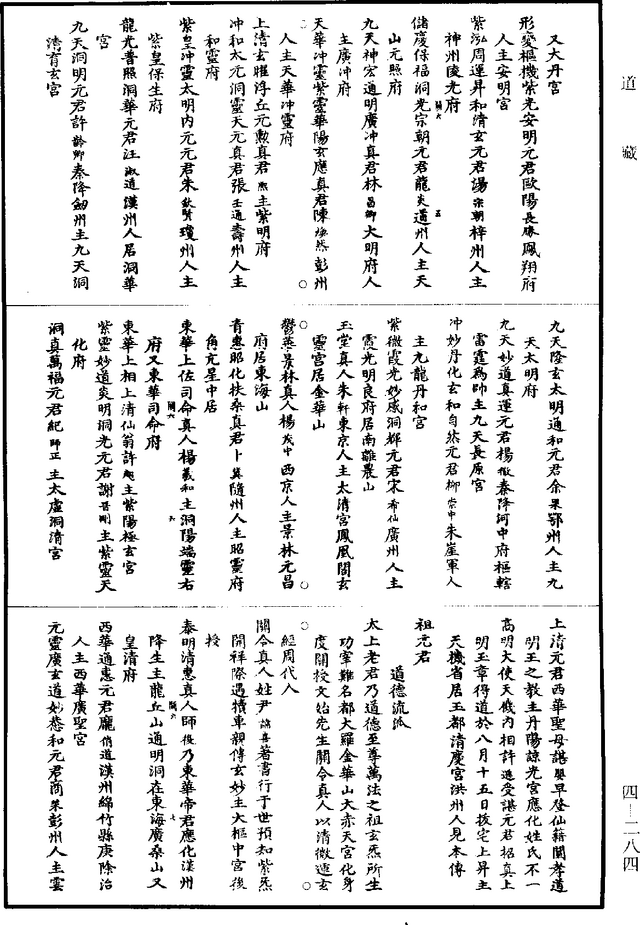 道藏
又大丹宮
形變樞機紫光安明元君歐陽長勝鳳翔府
人主安明宮
紫泓周運昇和清玄元君湯宗朝梓州人主
神州陵光府
儲慶保福洞光宗朝元君龍炎通州人主天
山元照府
九天神宏道明廣沖真君林昌卿大明府人
主廣沖府
天華沖靈紫靈華陽玄應真君陳煥然彭州
人主天華沖靈府
上清玄曜浮丘元勳真君主紫明府
沖和太元洞靈天元真君張壬通壽州人主
和靈府
紫皇沖靈太明內元元君朱欽賢瓊州人主
紫皇保生府
龍光普照洞華元君汪淑道漢州人居洞華
宮
九天洞明元君許齡卿秦降劒州主九天洞
清育玄宮
九天隆玄太明通和元君余果鄂州人主九
天太明府
九天妙道真運元君楊徹秦降河中府樞轄
雷霆為帥主九天長原宮
沖妙丹化玄和自然元君柳崇中朱崖軍人
主九龍丹和宮
紫微霞光妙感洞輝元君宋希仙廣州人主
霞光明良府居南離農山
玉堂真人朱軒東京人主太清宮鳳凰閣玄
靈宮居金華山
鬱燕景林真人楊茂中西京人主景林元昌
府居東海山
青惠昭化扶桑真君卜冀隨州人主昭靈府
角亢星中居
東華上佐司命真人楊羲和主洞陽端靈右
府又東華司命府
東華上相上清仙翁許主紫陽極玄宮
紫靈妙道炎明洞光元君謝晉剛主紫靈天
化府
洞真萬福元君紀師正主太虛洞清宮
上清元君西華聖母諶嬰早登仙籍闡孝道
明王之教主丹陽諒光宮應化姓氏不一
高明大使天機內相許遜受諶元君招真上
明玉章得道於八月十五日拔宅上昇主
天機省居玉都清慶宮洪州人見本傳
祖元君
道德流派
太上老君乃道德至尊萬法之祖玄炁所生
功宰難名都大羅金華山大赤天宮化身
度關授文始先生關令真人以清微遁玄
經周代人
關令真人姓尹諱喜著書行于世預知紫炁
開祥際遇犢車親傳玄妙主大樞中宮後
授
泰明清惠真人師後乃東華帝君應化漢州
降生主龍丘山通明洞在東海廣桑山又
皇清府
西華通惠元君龐倘道漢州綿竹縣庚除治
人主西華廣聖宮
元靈廣玄道妙慈和元君商禁彭州人主雲
四—二八四